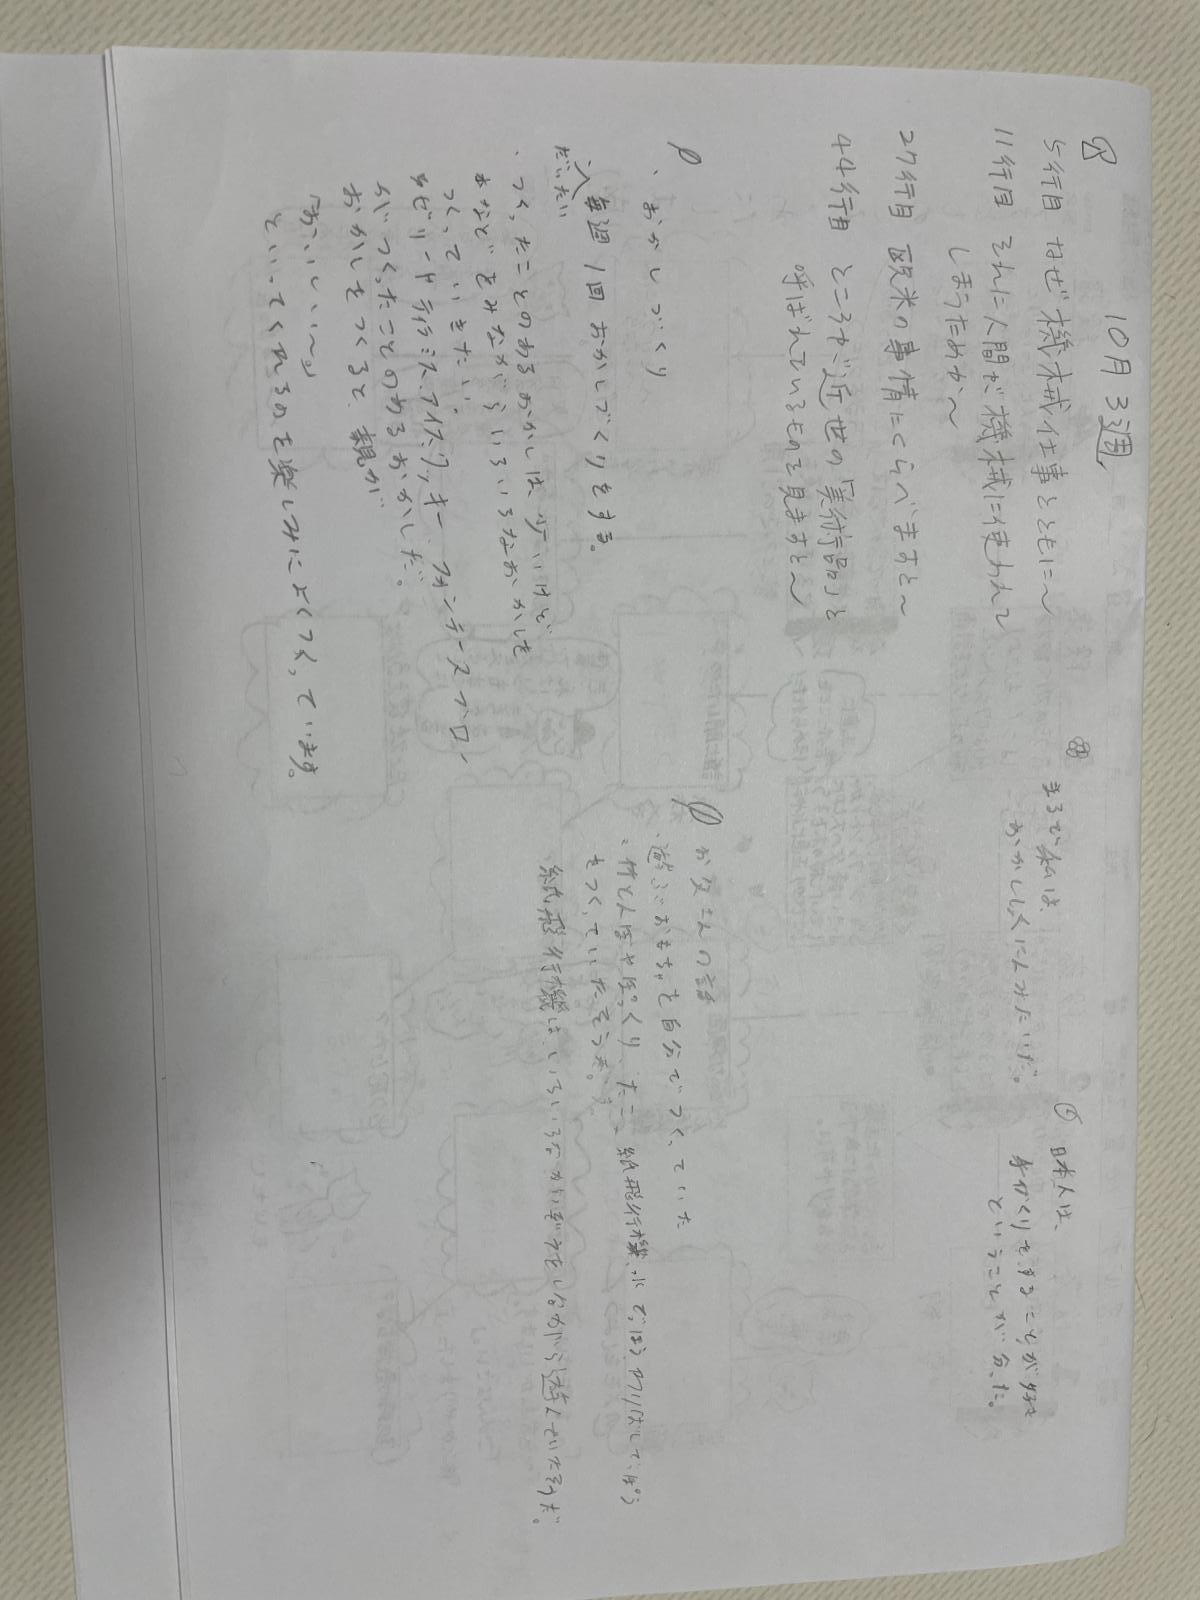 10月3週
5行目 なぜ機械仕事とともに〜
11行目 それに人間が機械に使われて
しまうためか〜
27行目 欧米の事情にくらべますと〜
44行目 ところが近世の「美術品」と
呼ばれているものを見ますと〜
まるで私は、
おかししょくにんみたいだ。
日本人は、
手づくりをすることが好き
ということが分った。
、おかしづくり
だいたい
毎週1回おかしづくりをする。
、つくったことのあるおかしは、少ないけど
などをみながらいろいろなおかしを
つくっていきたい。
ゼリーやティラミス、アイスクッキー、フォンデースブロン
がつくったことのあるおかしだ。
おかしをつくると親が
「おいしい〜。」
といってくれるのを楽しみによくつくっています。
お父さんの話
、遊ぶおもちゃを自分でつくっていた
、竹とんぼやぽっくり、たこ、紙飛行機、水でっぽう、わりばしでっぽう
をつくっていたそうだ。
、紙飛行機は、いろいろなかいぞうをしながら遊んでいたそうだ。